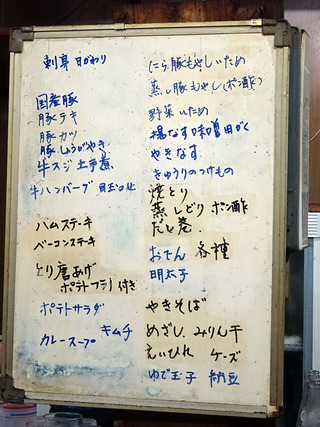 刺身 日がわり
国産豚
豚テキ
豚カツ
豚しょうがやき
牛スジ 土手煮
牛ハンバーグ 目玉のせ
ハムステーキ
ベーコンステーキ
とり唐あげ
ポテトフライ付き
ポテトサラダ
キムチ
カレースープ
にら豚もやしいため
蒸し豚もやし(ポン酢)
野菜いため
揚なす味噌田がく
やきなす
きゅうりのつけもの
焼とり
蒸しどり ポン酢
だし巻
おでん 各種
明太子
やきそば
めざし みりん干
えいひれ チーズ
ゆで玉子 納豆